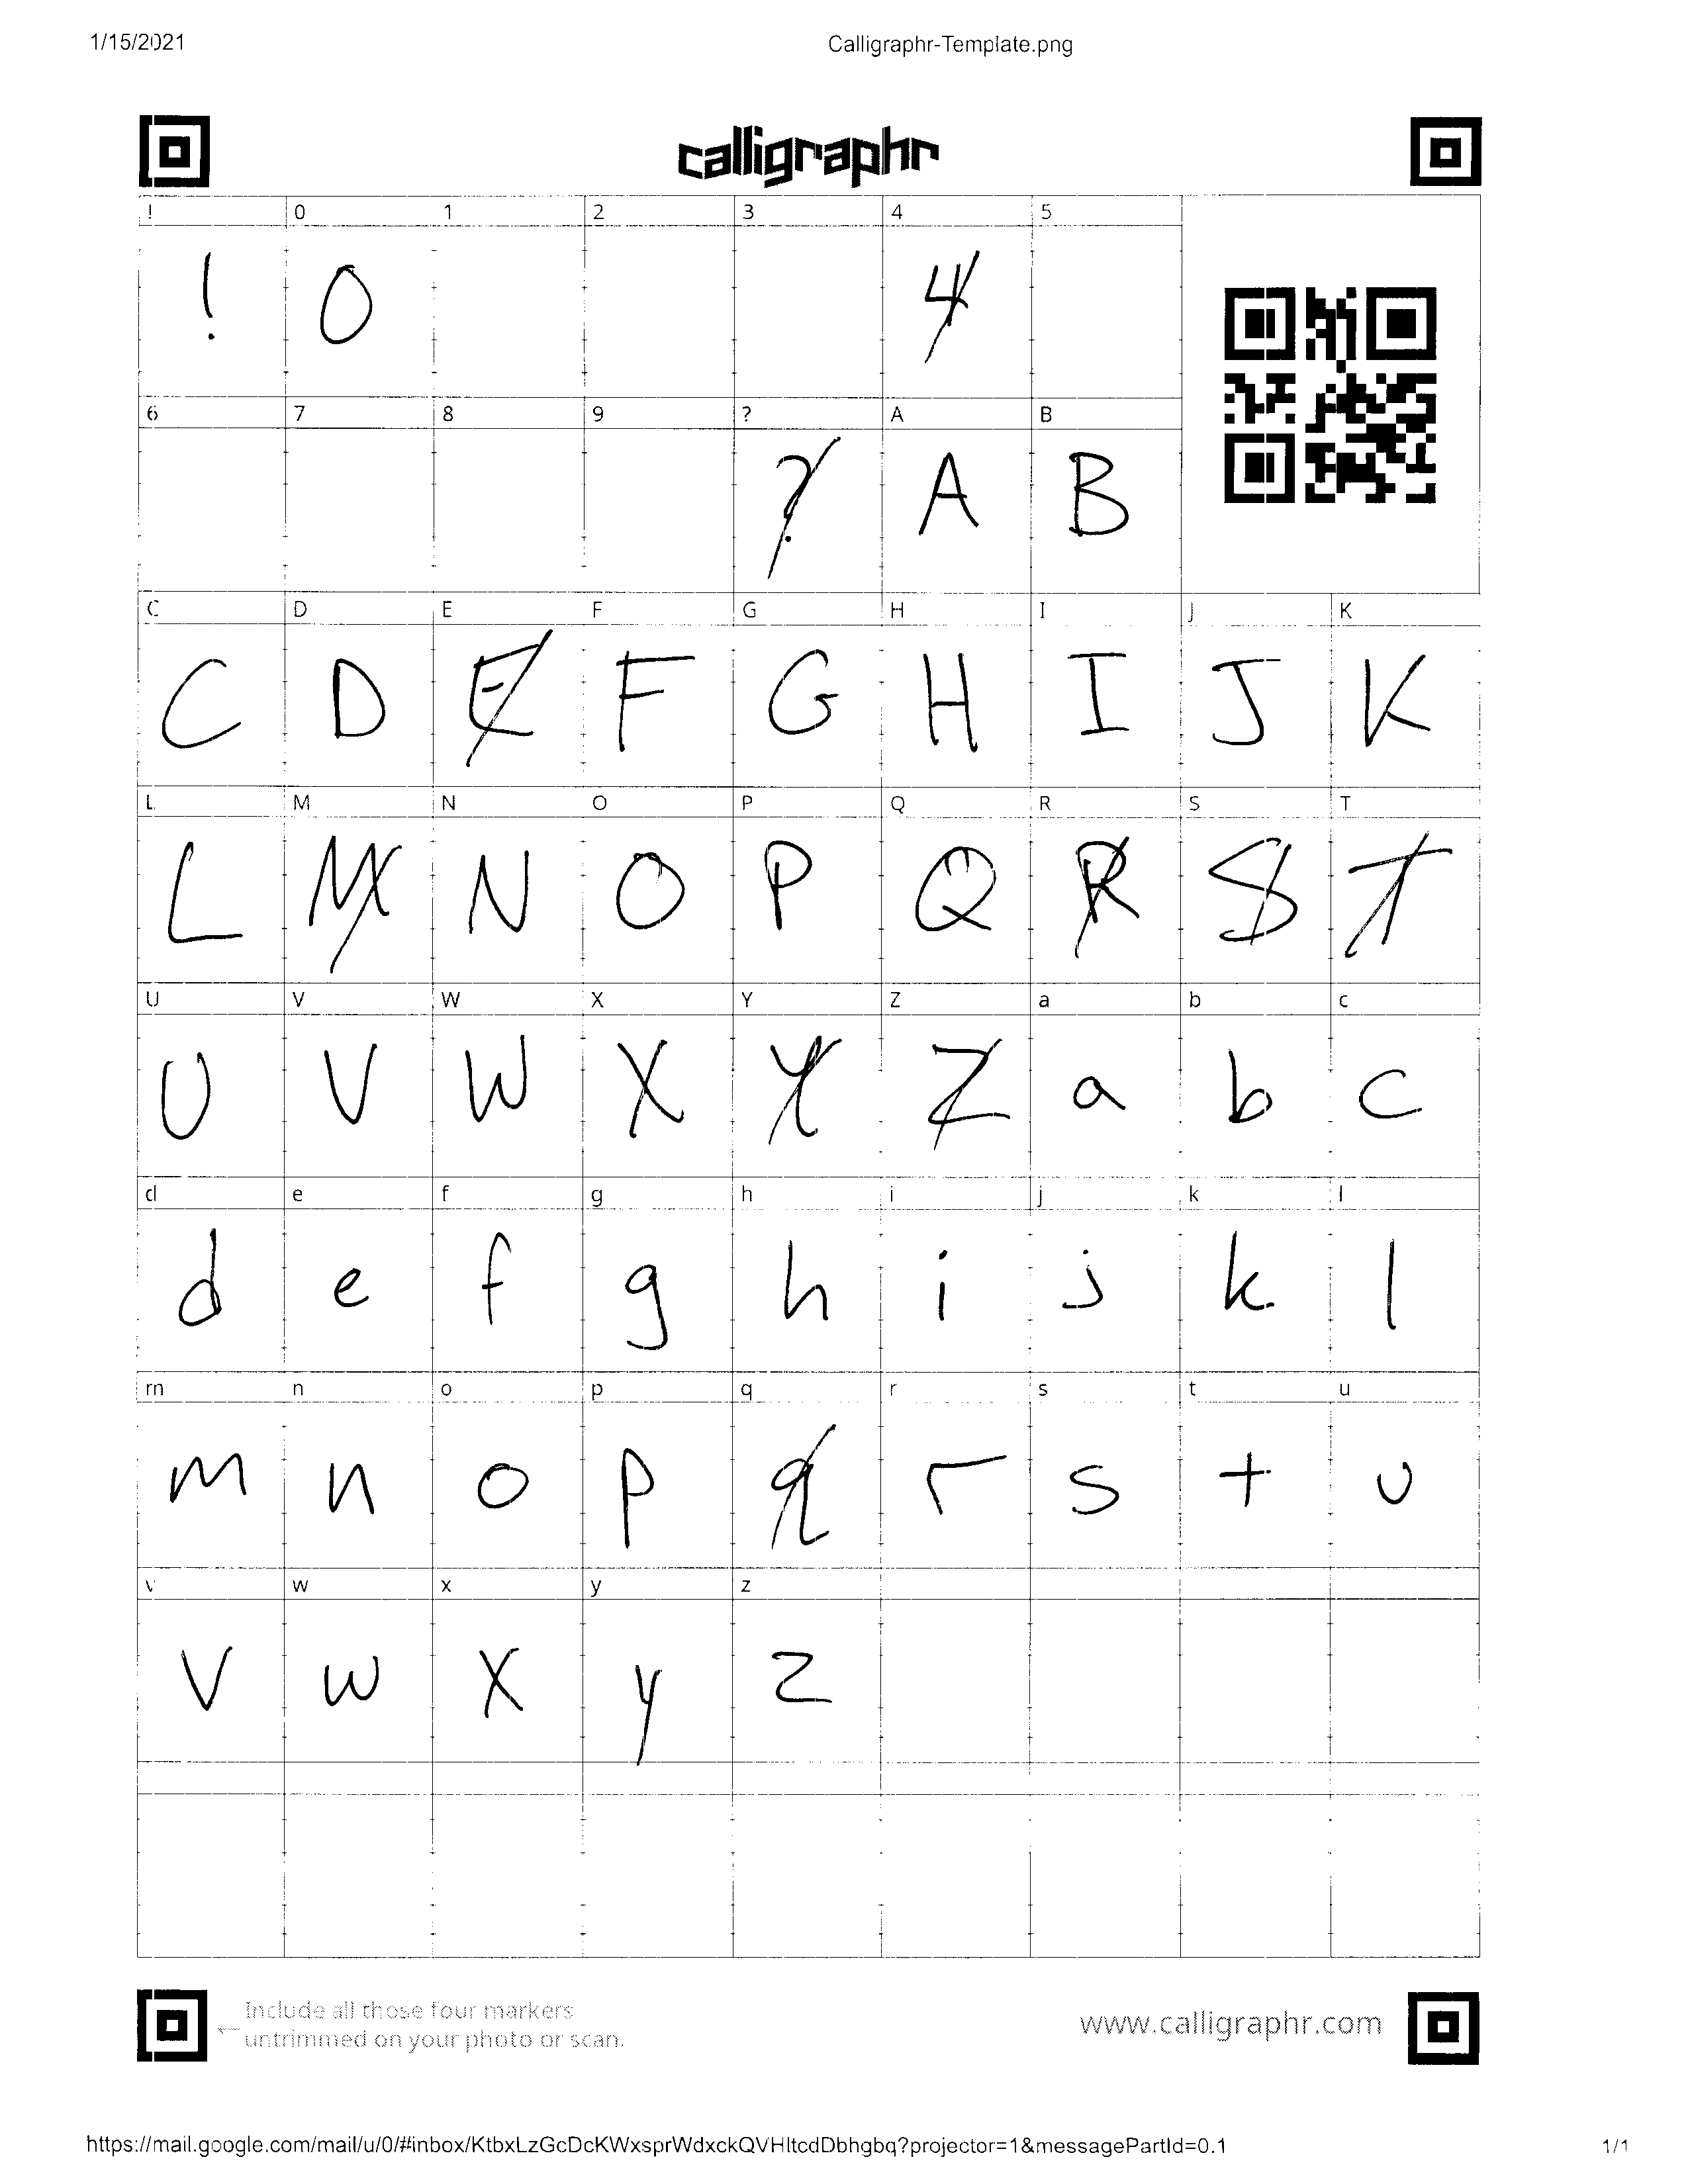 1/15/2021 Calligraphr-Template.png
calligraphr
! 0 1 2 3 4 5
! 0 4
6 7 8 9 ? A B
? A B
C D E F G H I J K
C D E F G H I J K
L M N O P Q R S T
L M N O P Q R S T
U V W X Y Z a b c
U V W X Y Z a b c
d e f g h i j k l
d e f g h i j k l
m n o p q r s t u
m n o p q r s t u
v w x y z
v w x y z
Include all those four markers
← untrimmed on your photo or scan.
www.calligraphr.com
https://mail.google.com/mail/u/0/#inbox/KtbxLzGcDcKWxsprWdxckQVHltcdDbhgbq?projector=1&messagePartId=0.1 1/1